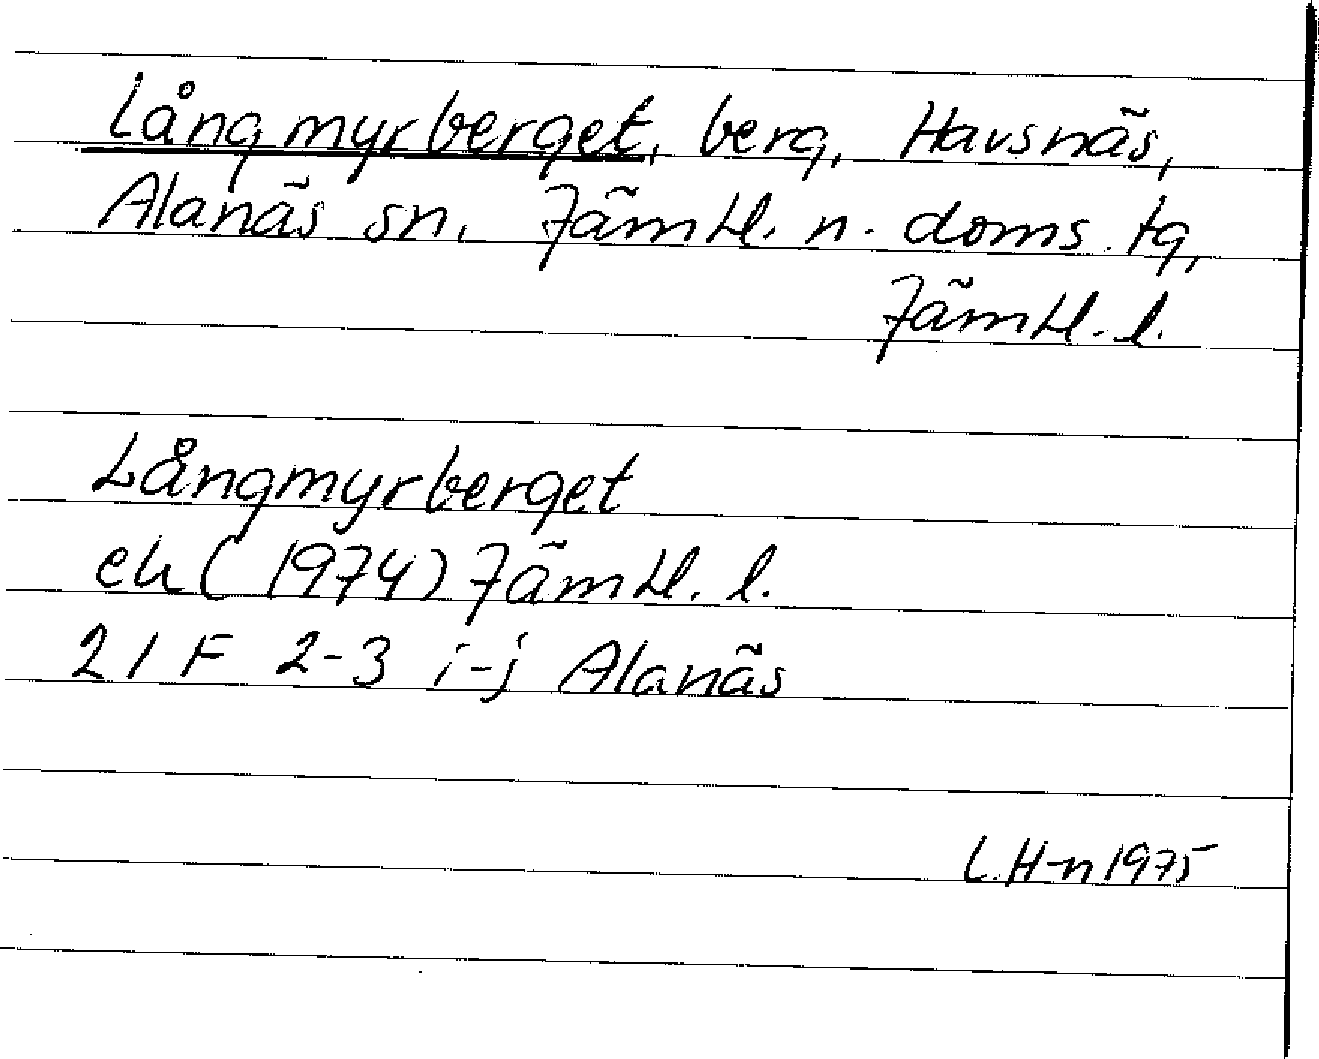 Långmyrberget, berg, Havsnäs,
Alanäs sn, Jämtl. n. doms. tg,
Jämtl. l.
Långmyrberget
ek (1974) Jämtl. l.
21 F 2-3 i-j Alanäs
L.H-n 1975